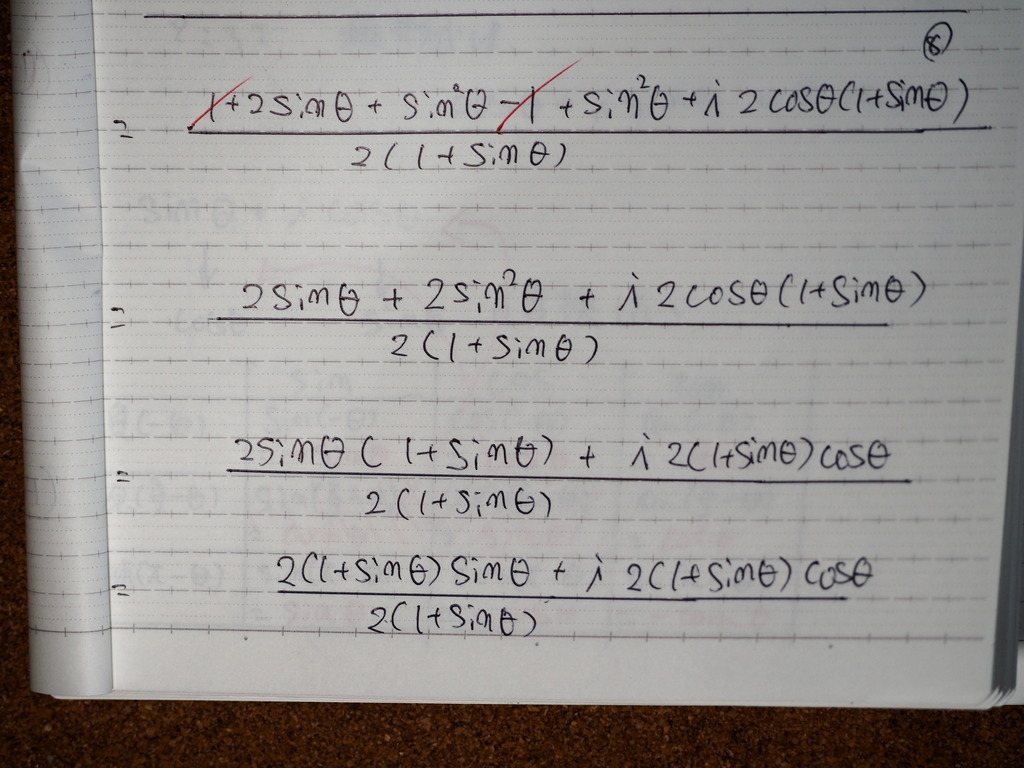 ⑧
= (1 + 2 sinθ + sin²θ - 1 + sin²θ + i 2 cosθ(1+sinθ)) / 2(1+sinθ)
= (2 sinθ + 2 sin²θ + i 2 cosθ(1+sinθ)) / 2(1+sinθ)
= (2 sinθ(1+sinθ) + i 2(1+sinθ) cosθ) / 2(1+sinθ)
= (2(1+sinθ) sinθ + i 2(1+sinθ) cosθ) / 2(1+sinθ)